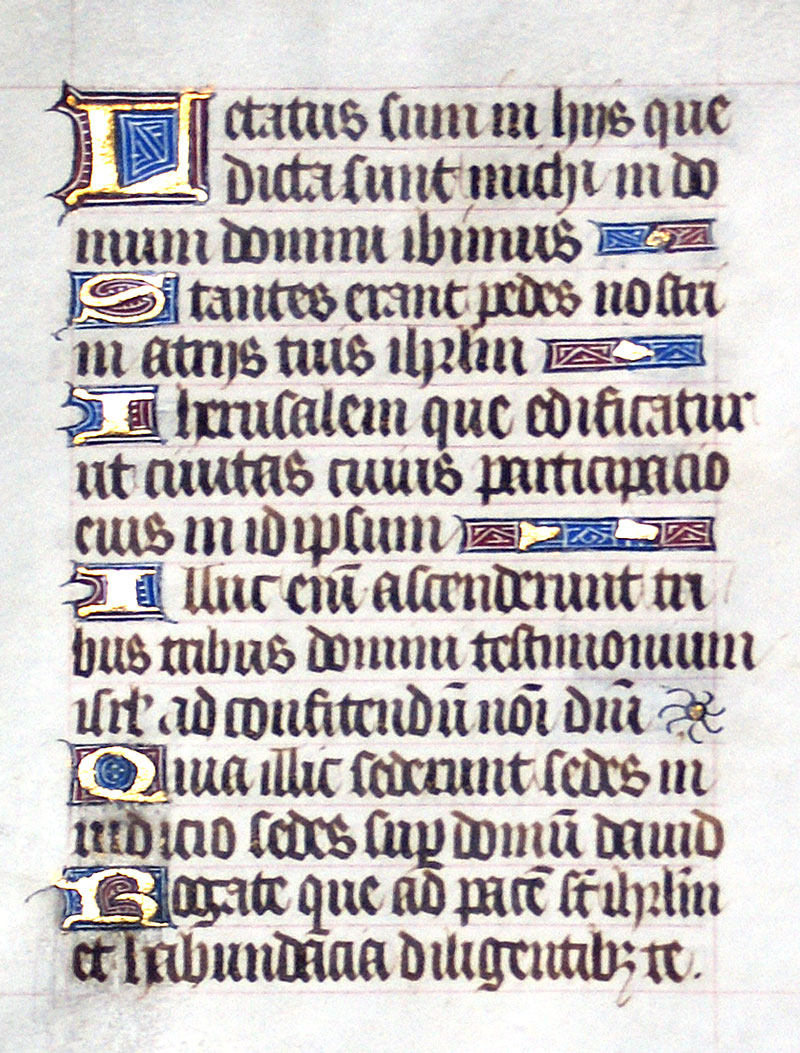 Letatus sum in hijs que
dicta sunt michi in do
mum domini ibimus
Stantes erant pedes nostri
in atrijs tuis ihrlm
Iherusalem que edificatur
ut ciuitas cuius participacio
eius in idipsum
Illuc enī ascenderunt tri
bus tribus domini testimonium
isrl' ad confitendū nōi dn̄i
Quia illic sederunt sedes in
iudicio sedes suꝑ domū dauid
Rogate que ad pacē st̄ ihrlm̄
et habundācia diligentibꝫ te.